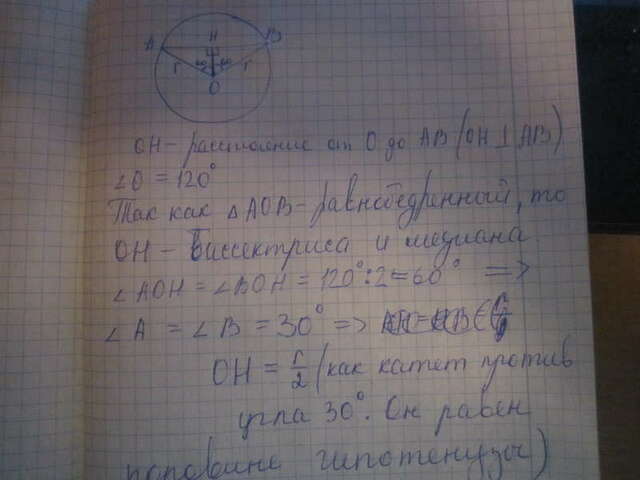 A H B
r 60° 60° r
O
OH – расстояние от O до AB (OH ⊥ AB)
∠O = 120°
Так как △AOB – равнобедренный, то
OH – биссектриса и медиана.
∠AOH = ∠BOH = 120° : 2 = 60° =>
∠A = ∠B = 30° =>
OH = r/2 (как катет против
угла 30°. Он равен
половине гипотенузы)